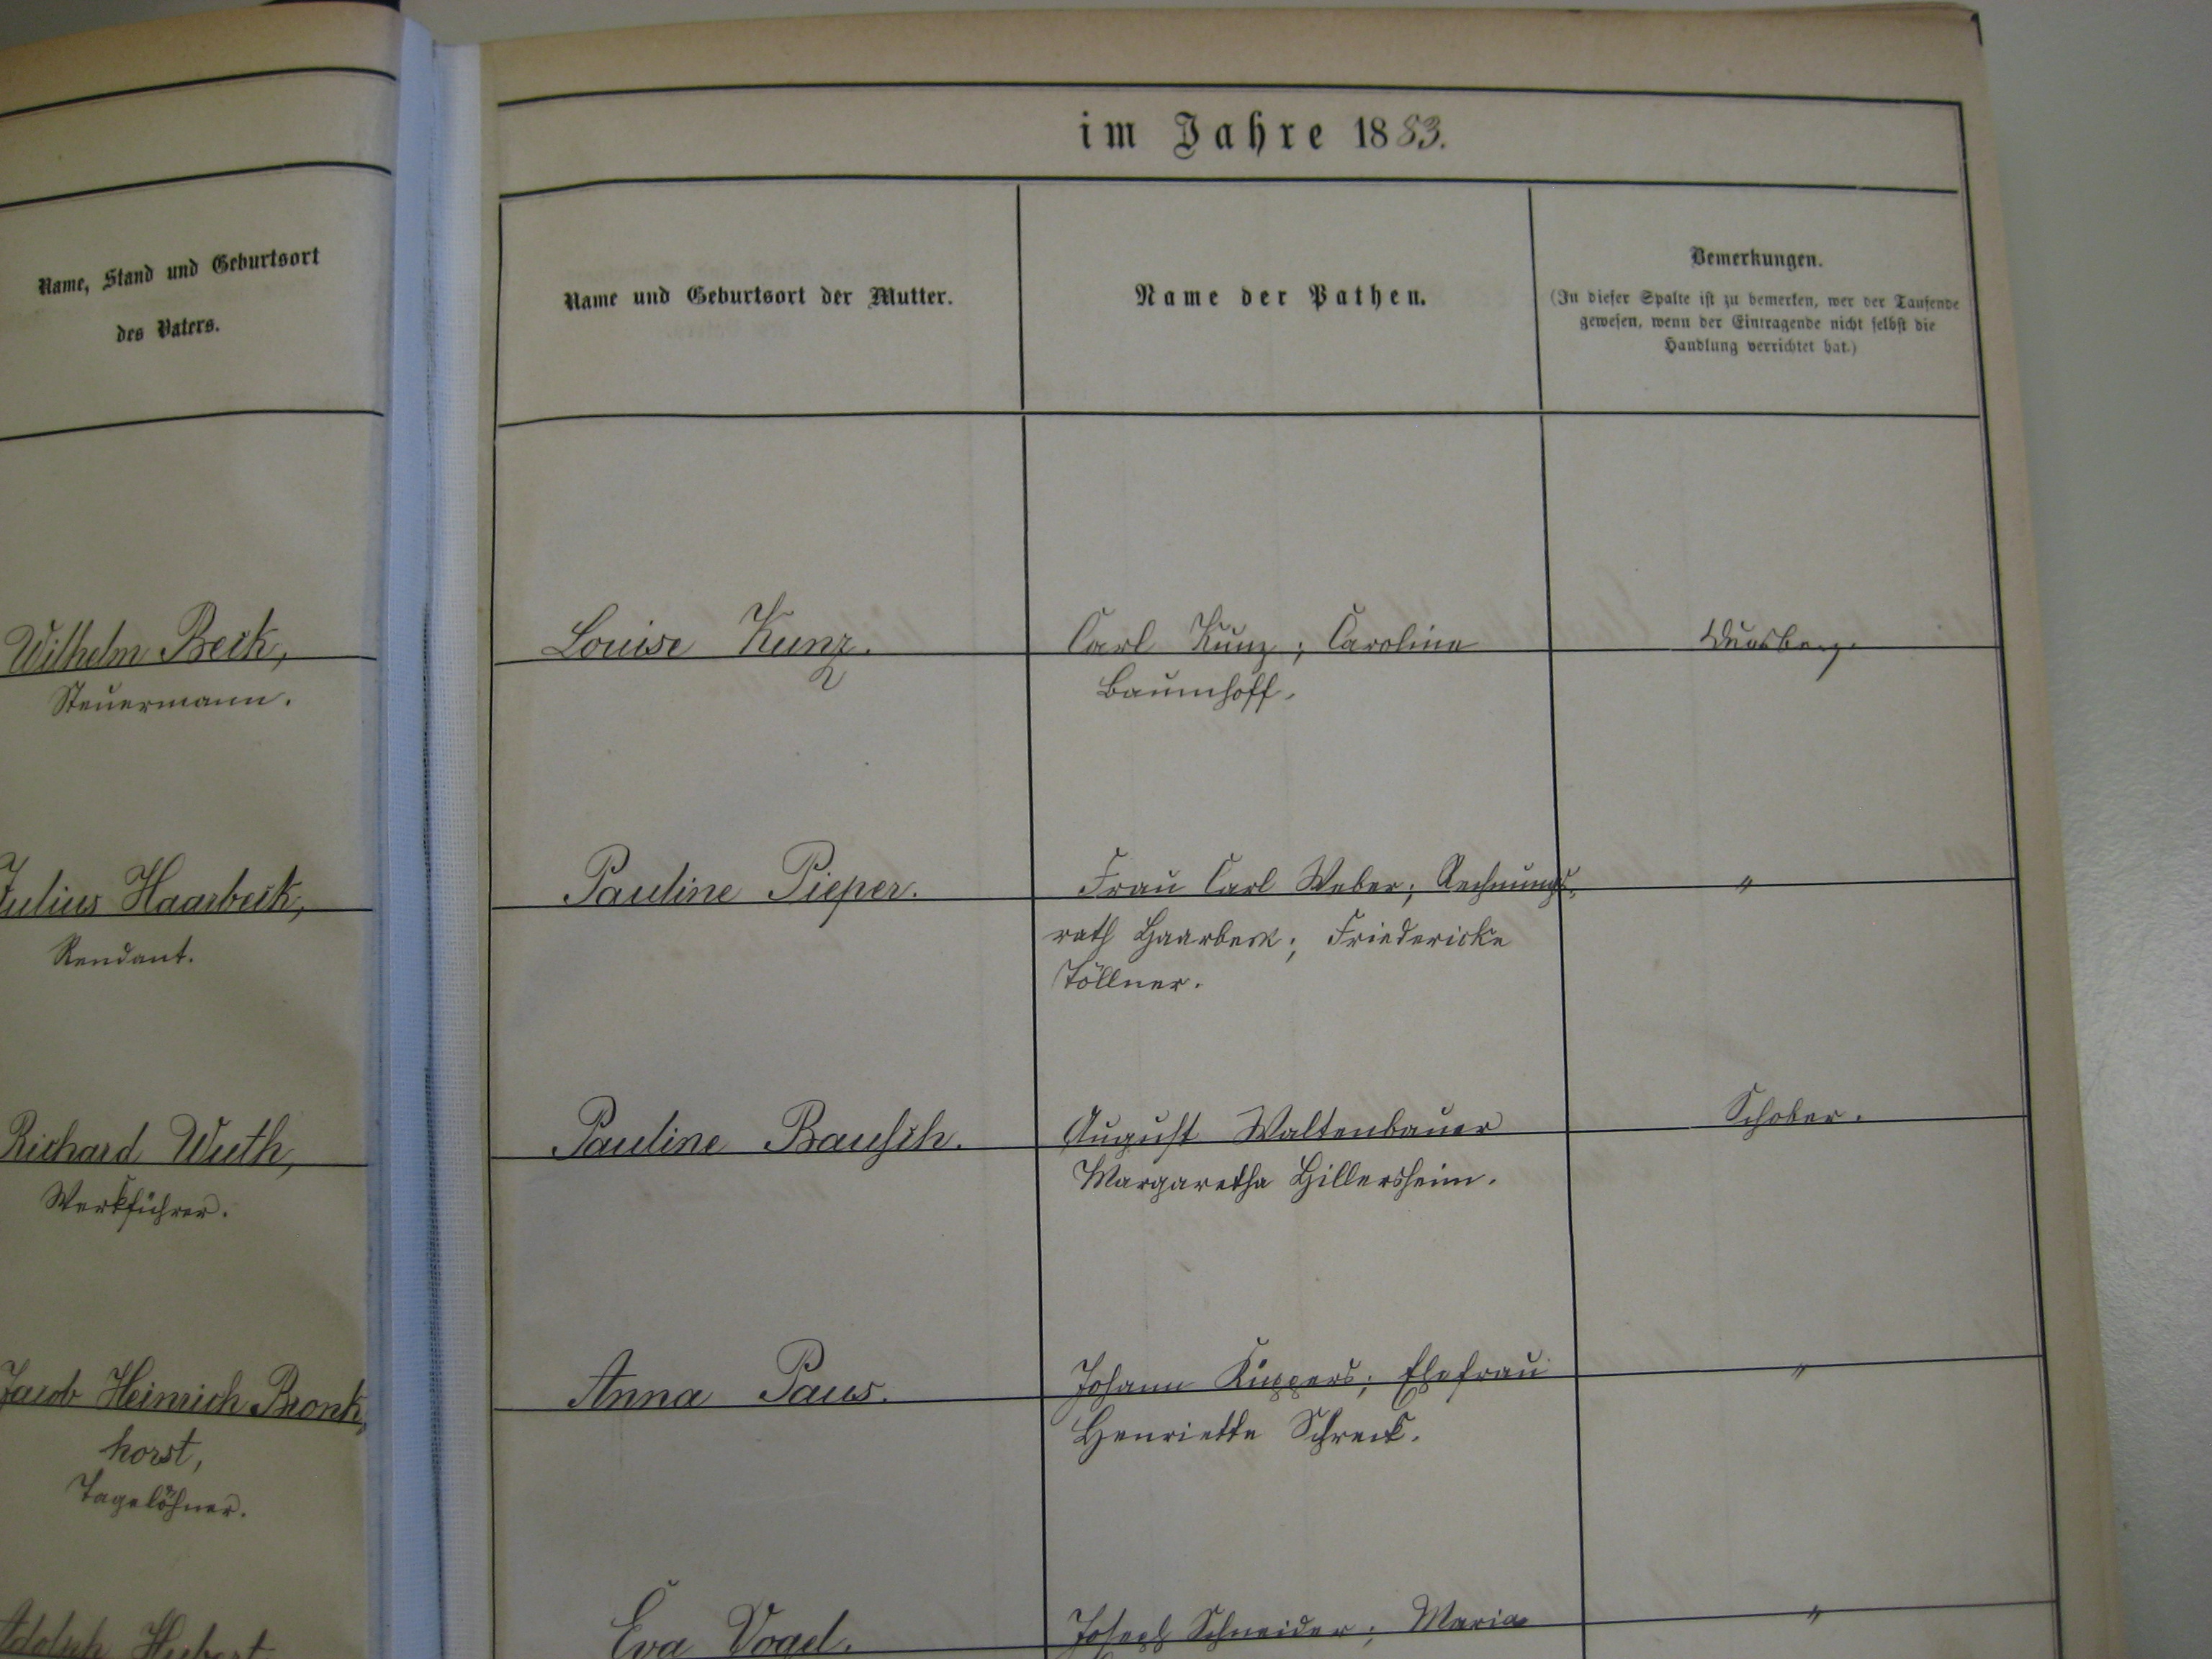 im Jahre 1883.
Name, Stand und Geburtsort
des Vaters.
Name und Geburtsort der Mutter.
Name der Pathen.
Bemerkungen.
(In dieser Spalte ist zu bemerken, wer der Taufende
gewesen, wenn der Eintragende nicht selbst die
Handlung verrichtet hat.)
Wilhelm Beck,
Steuermann.
Louise Kunz.
Carl Kunz; Caroline
Baumhoff.
Julius Haarbeck,
Rendant.
Pauline Pieper.
Frau Carl Weber; Rechnungs-
rath Haarbeck; Friedericke
Töllner.
"
Richard Wuth,
Werkführer.
Pauline Bausch.
August Waltenbauer
Margaretha Hillersheim.
Schober.
Jacob Heinrich Bronk-
horst,
Tagelöhner.
Anna Paus.
Johann Küppers; Ehefrau
Henriette Schreck.
"
Adolph Hubert
Eva Vogel.
Joseph Schneider; Maria
"